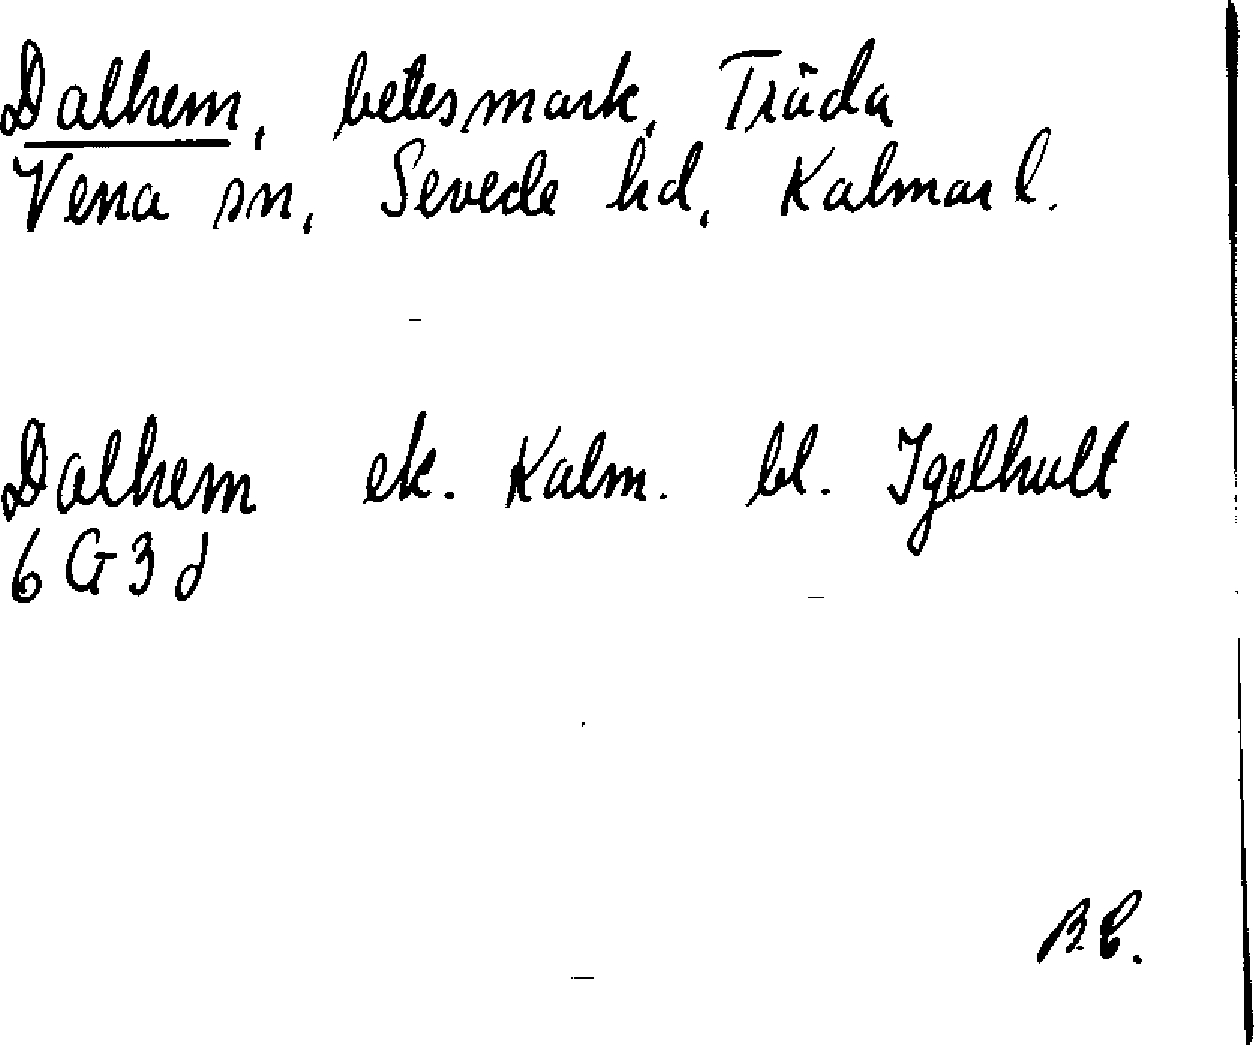 Dalhem, betesmark, Träda
Vena sn, Sevede hd, Kalmar l.
Dalhem ek. Kalm. bl. Igelhult
6 G 3 d